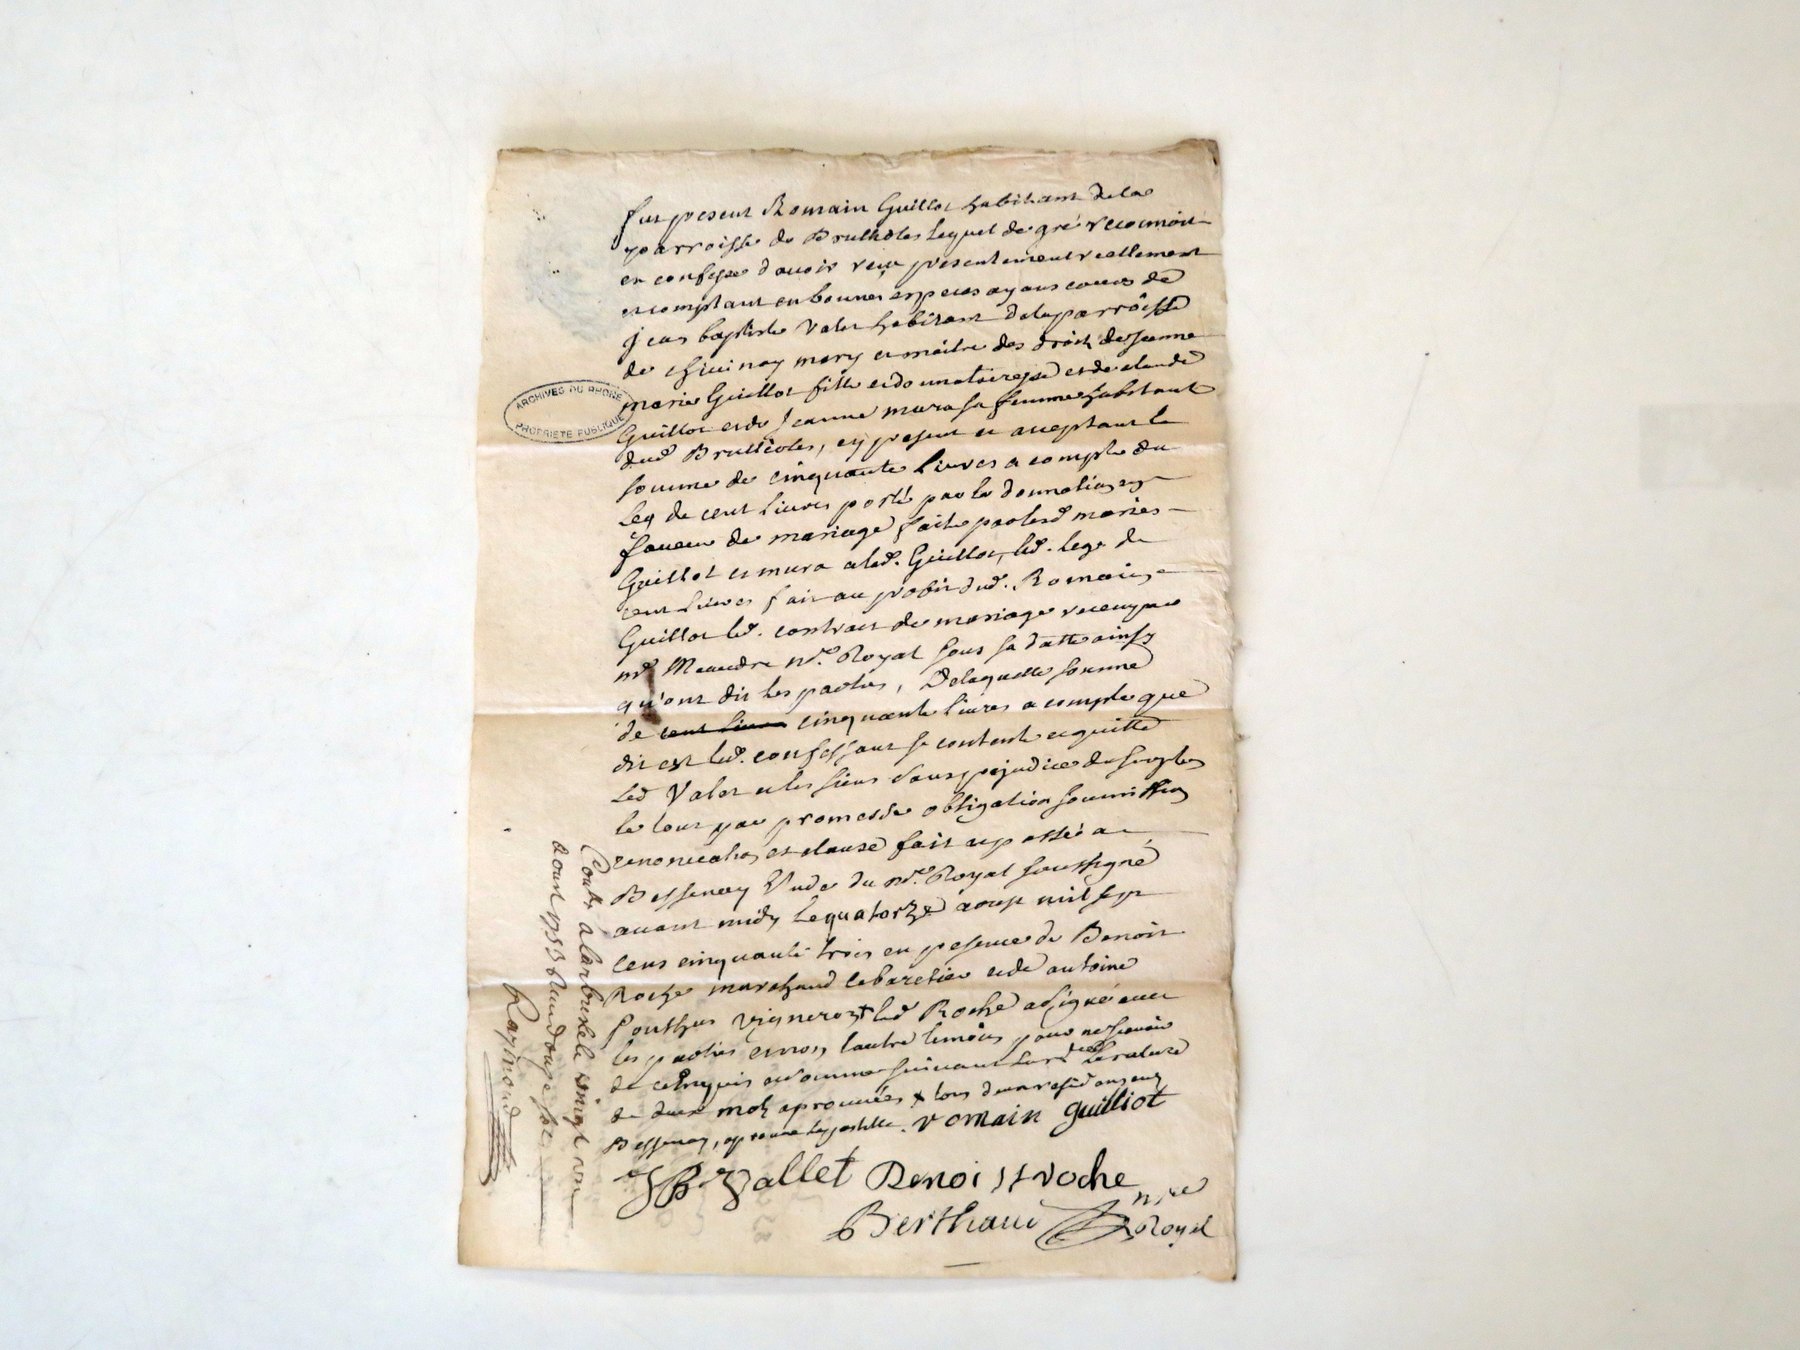 fut present Romain Guillot habitant de la
parroisse de Brullioles lequel de gré reconnoit
et confesse d'avoir reçu presentement reellement
et comptant en bonnes especes ayans cours de
jean baptiste Valet habitant de la parroisse
de mary et maitre des droits de jeanne
marie Guillot fille et donnatairesse et de claude
Guillot et de Jeanne mura sa femme habitant
dud Brullioles, cy present et acceptant la
somme de cinquante livres a compte du
leg de cent livres porté par la donnation en
faveur de mariage faite par lesd mariés
Guillot et mura a lad. Guillot, led. legs de
cent livres fait au profit dud. Romain
Guillot led. contrat de mariage receu par
me Meaudre nre. Royal sous sa datte ainsy
qu'ont dit les parties, De laquelle somme
de cent livres cinquante livres a compte que
dit est led. confessant se contente et quitte
led Valet et les siens sans prejudice du surplus
le tout par promesse obligation soumission
renonciation et clause fait et passé a
Bessenay Etude du nre. Royal soussigné
avant midy le quatorze aoust mil sept
cens cinquante trois en presence de Benoit
Roche marchand cabaretier et de antoine
Ponthus vigneron + led Roche a signé avec
les parties et non lautre temoin pour ne scavoir
de ce enquis et somme suivant lord les rature
de deux mots aprouvées + tous deux residans aud
Bessenay, aprouve la postille. romain guilliot
JB Vallet Benoist roche
Berthaud nre
Royal
Conté a larbresle le vingt un
aoust 1753 Reçu douze sols
Raymond
ARCHIVES DU RHONE
PROPRIETE PUBLIQUE